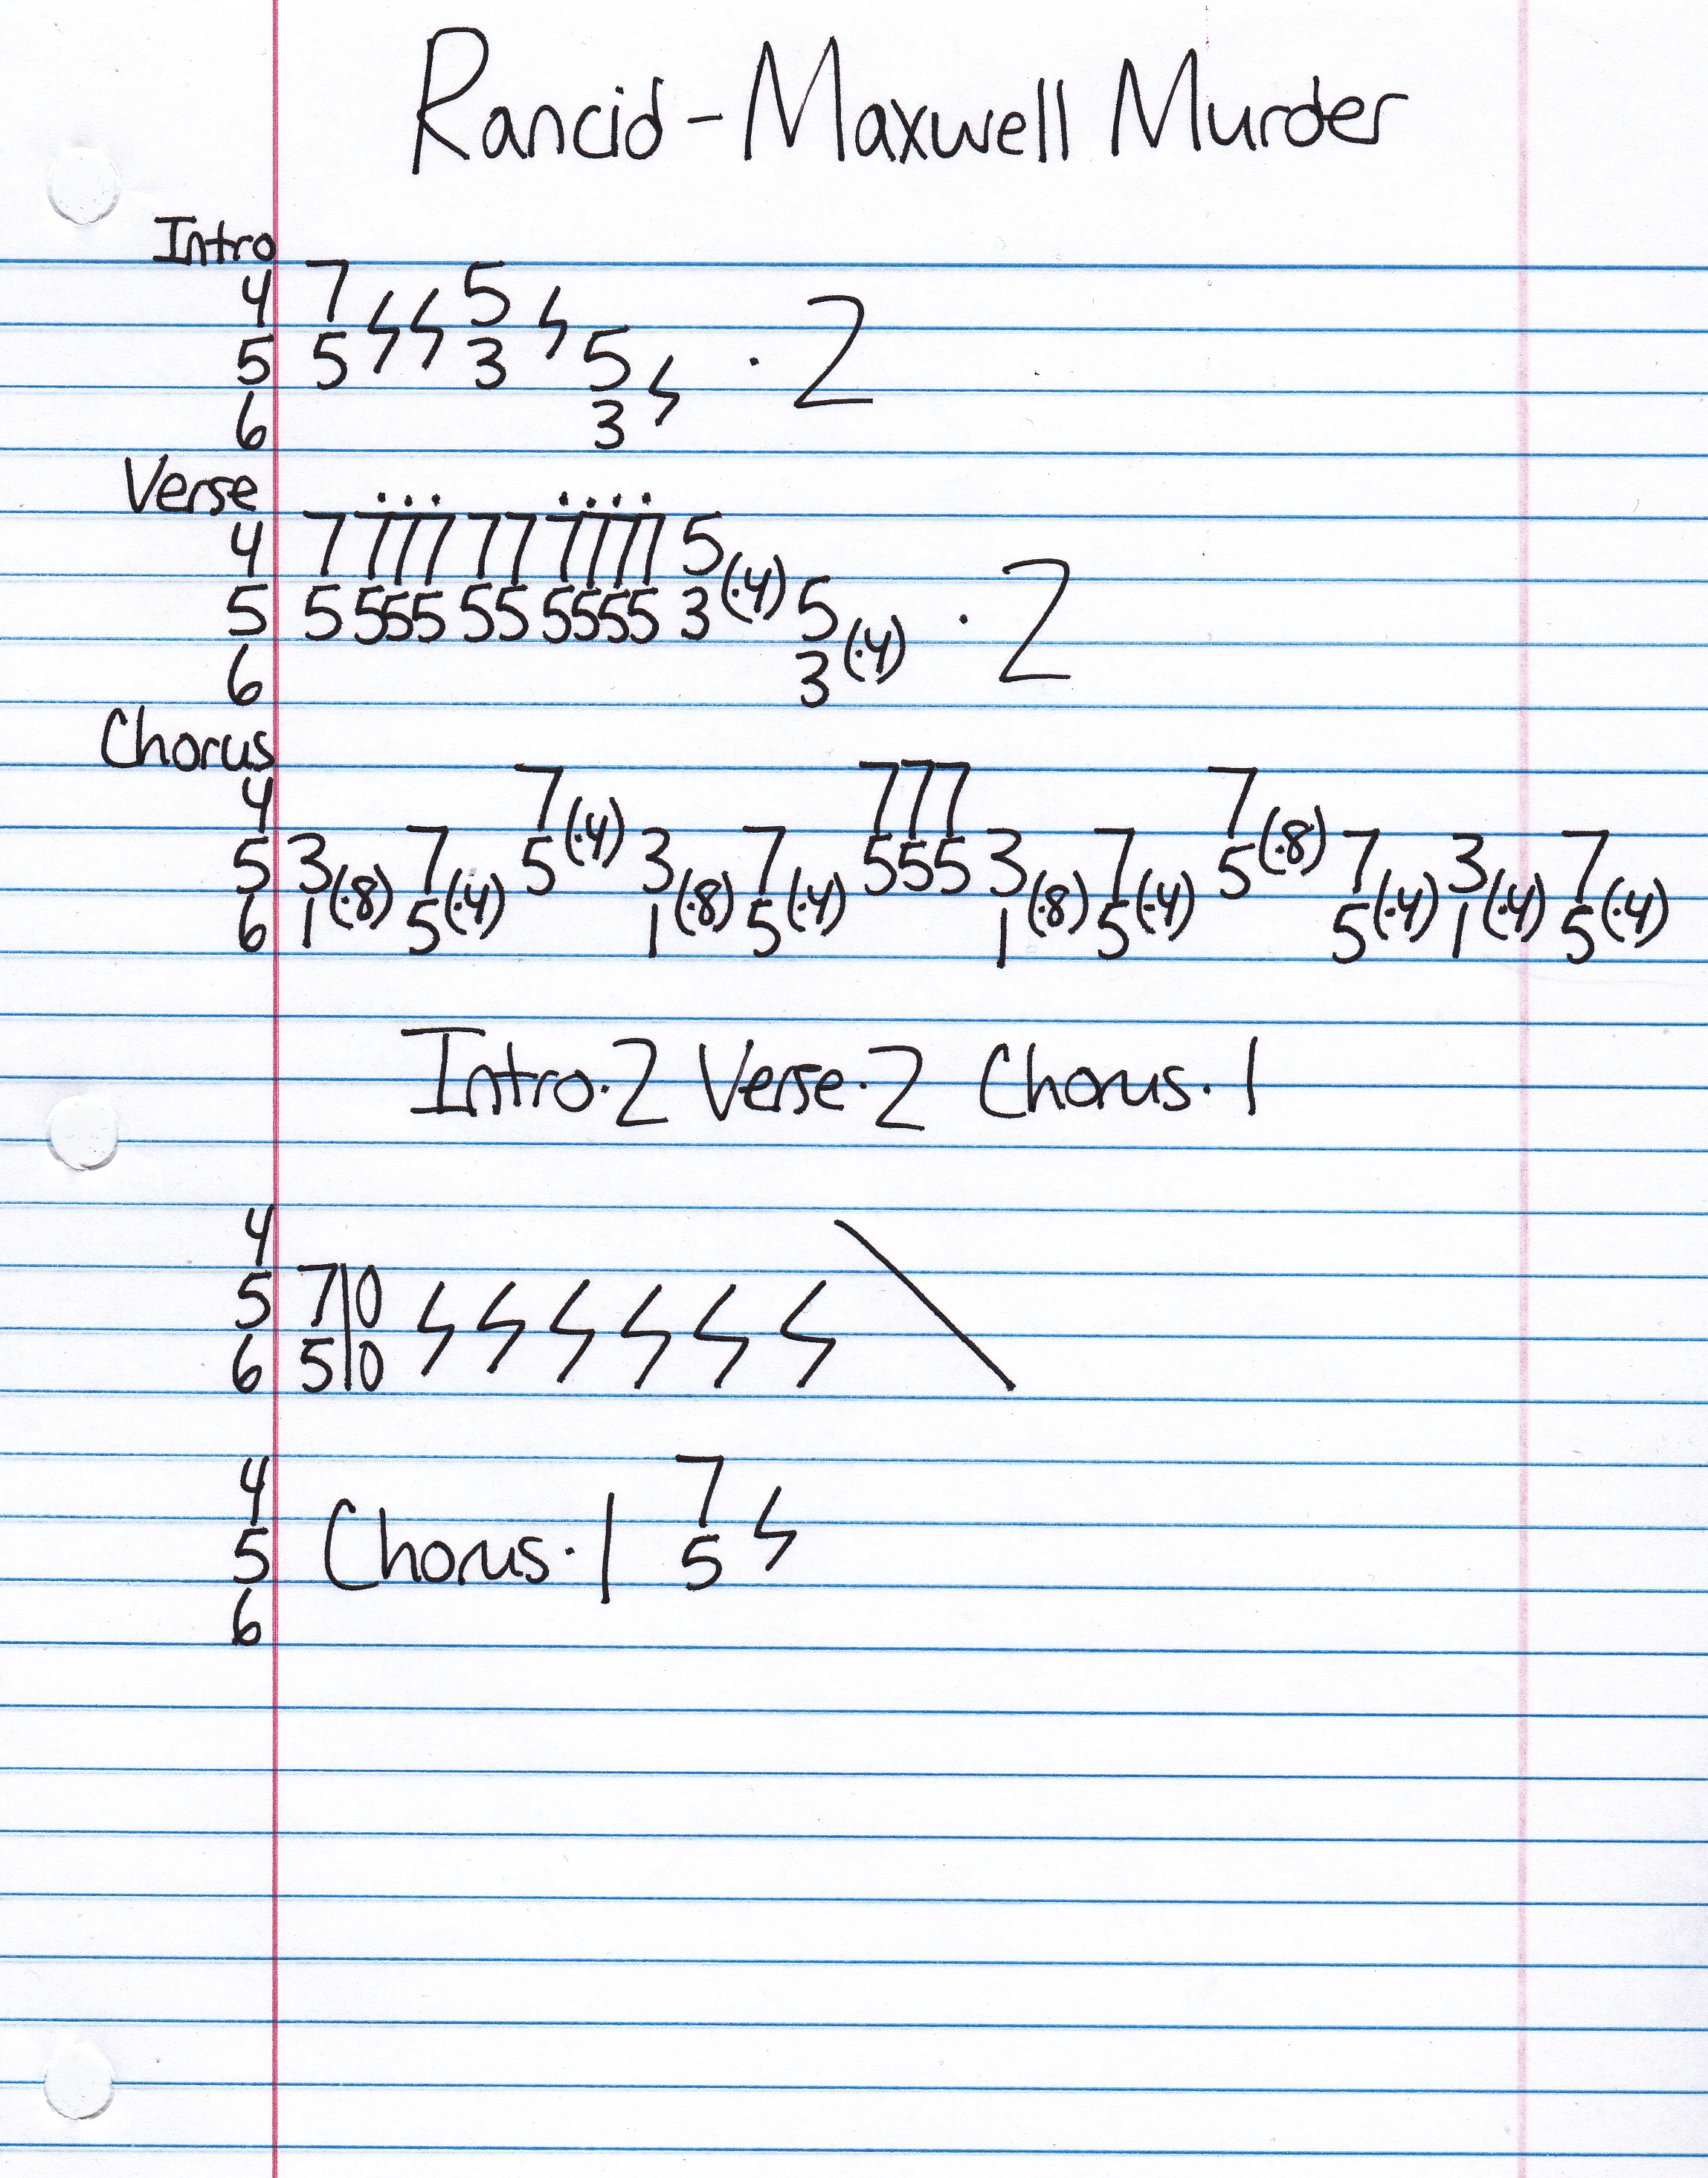 Rancid - Maxwell Murder
Intro
4 7 5
5 5 3 5 · 2
6 3
Verse
4 7 777 77 7777 5
5 5 555 55 5555 3 (·4) 5 · 2
6 3 (·4)
Chorus
4 7 777 7
5 3 7 5 (·4) 3 7 555 3 7 5 (·8) 7 3 7
6 1 (·8) 5 (·4) 1 (·8) 5 (·4) 1 (·8) 5 (·4) 5 (·4) 1 (·4) 5 (·4)
Intro·2 Verse·2 Chorus·1
4
5 7|0
6 5|0
4 7
5 Chorus·1 5
6